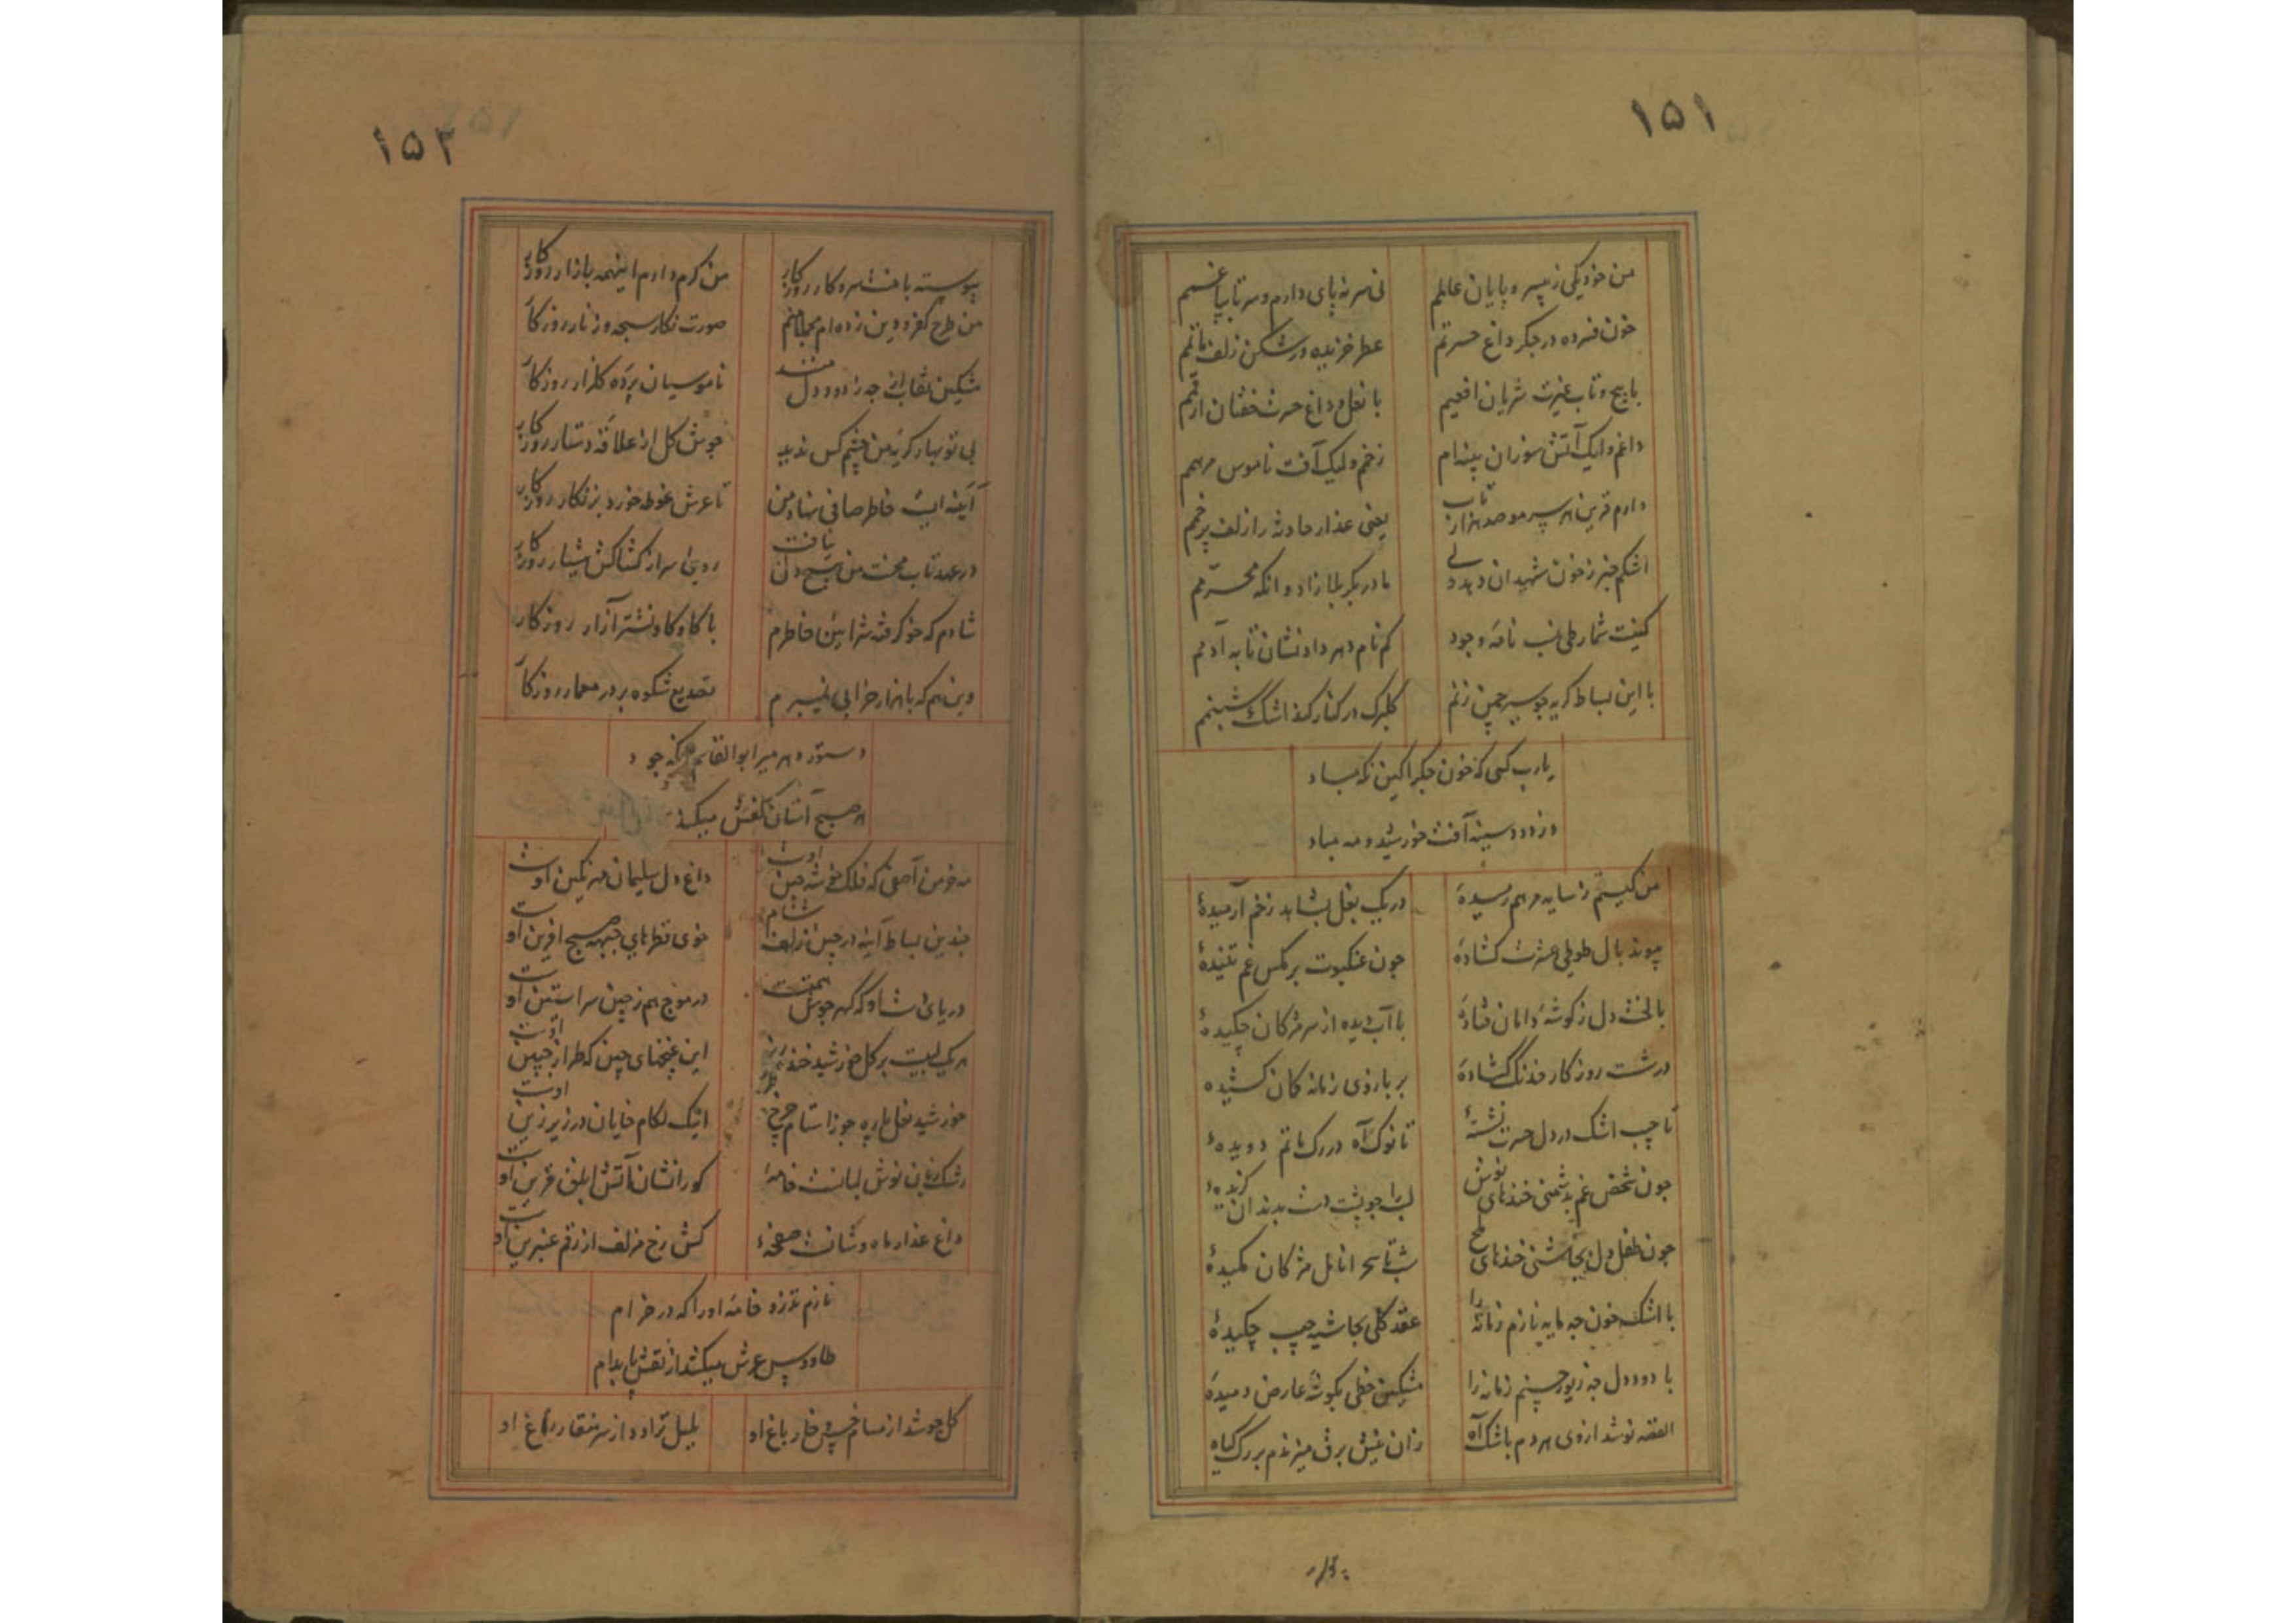 ۱۵۱
من خود یکی ز بی سر و پایان عالمم
نی سر نه پای دارم و سر تا بپا غمم
خون فسرده در جگر داغ حسرتم
عطر خزیده در شکن زلف ماتمم
با پیچ و تاب غیرت شریان افعیم
با نعل و داغ حسرت خفتان ارقمم
داغم و لیک آتش سوزان پنبه‌ام
زخم و لیک آفت ناموس مرهمم
دارم قرین هر سر مو صد هزار تاب
یعنی عذار حادثه را زلف پر خمم
اشکم خبر ز خون شهیدان دهد ولی
مادر بکربلا زاد و انکه محرمم
کنیت شمار طی نسب نامه وجود
کم نام دهر داد نشان تا به آدمم
با این بساط گریه چو سیر چمن زنم
گلبرگ در کنار کند اشک شبنمم
یارب کسی که خون جگر آگین نگه مباد
وز دود سینه آفت خورشید و مه مباد
من کیستم ز سایه مرهم رمیده
در یک بغل بشاهد زخم آرمیده
پیوند بال طوطی عشرت گشاده
چون عنکبوت بر مگس غم تنیده
با لخت دل ز گوشه دامان فتاده
با آب دیده از سر مژگان چکیده
در شست روزگار خدنگ گشاده
بر بازوی زمانه کمان کشیده
تا چیب اشک در دل حسرت نشسته
تا نوک آه در رگ ماتم دویده
چون شخص غم بدشمنی خندهای نوش
لب را چو پشت دست بدندان گزیده
چون طفل دل بچاشنی خندهای تلخ
شب تا سحر انامل مژگان مکیده
با اشک خون چه مایه بنازم زمانه را
عقد گلی بحاشیه جیب چکیده
با دود دل چه زیور حسنم زمانه را
مشکین خطی بگوشه عارض دمیده
القصه نوشد از وی هر دم باشک آه
زان عیش برق میزندم بر رگ گیاه
۱۵۲
پیوسته با منست سر و کار روزگار
من گرم دارم اینهمه بازار روزگار
من طرح کفر و دین زده‌ام
صورت نگار سبحه و زنار روزگار
مشکین نقاب از چه ز دود دل منند
ناموسیان پرده گلزار روزگار
بی تو بهار گریه من چشم کس ندید
جوش گل از علاقه دستار روزگار
آئینه ایست خاطر صافی نهاد من
تا عرش غوطه خورد بزنگار روزگار
در عهد تاب محنت من
سر از کشاکش روزگار
شادم که خو گرفته شرائین خاطرم
با کاوکاو نشتر آزار روزگار
وین هم که با هزار خرابی نمیبرم
تصدیع شکوه بر در معمار روزگار
دستور دهر میر ابوالقاسم آنکه جود
هر صبح آستان کفش میکند
مه خرمن آصفی که فلک خوشه چین اوست
داغ دل سلیمان مهر نگین اوست
چندین بساط آینه در چین زلف شام
خوی قطرهای جبهه صبح آفرین اوست
دریای
در موج هم ز چین سر آستین اوست
هر یک بر گل خورشید خنده
این غنچهای چین که طراز جبین اوست
خورشید نعل پاره جوزا ستام چرخ
اینک لگام خایان در زیر زین اوست
رشک زبان نوش لبانست خامه
کو را نشان آتش ابلق قرین اوست
داغ عذار ماه وشانست صفحه
کش رخ مزلف از رقم عنبرین اوست
نازم تذرو خامه او را که در خرام
طاووس عرش میکشد از نقش پا بدام
گل جوشد از مسام خس و خار باغ او
بلبل تراود از سر منقار زاغ او